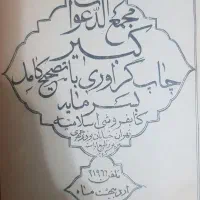 مجمع الدعوات
کبیر
چاپ گراوری با تصحیح کامل
بسرمایه
کتابفروشی اسلامیه
تهران خیابان بوذرجمهری
تلفن ۲۱۹۶۶
اردیبهشت ماه